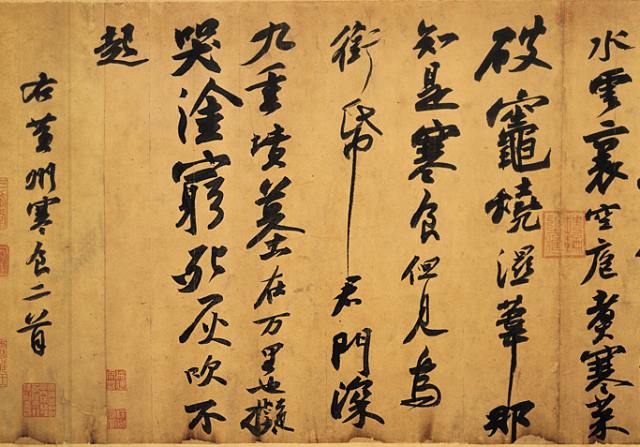 水雲裏空庖煮寒菜
破竈燒濕葦那
知是寒食但見烏
銜帋君門深
九重墳墓在万里也擬
哭塗窮死灰吹不
起
右黃州寒食二首